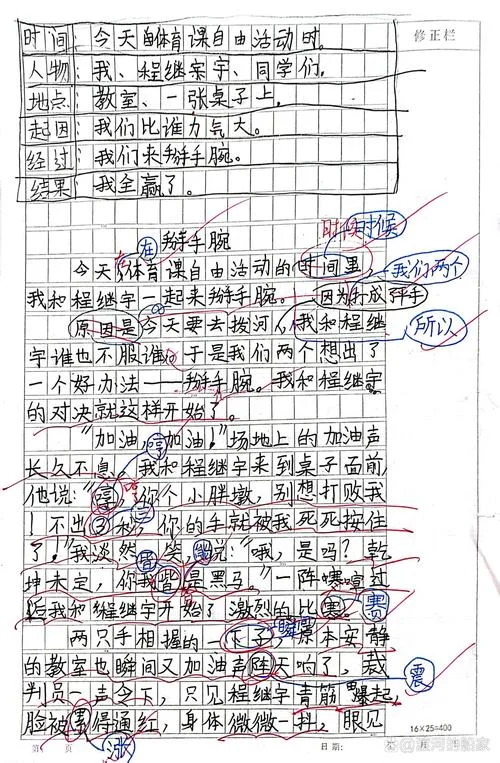 时间：今天自体育课自由活动时。
修正栏
人物：我、程继宇、同学们。
地点：教室、一张桌子上。
起因：我们比谁力气大。
经过：我们来掰手腕。
结果：我全赢了。
掰手腕
在
时候
今天体育课自由活动的时间里，
我们两个
我和程继宇一起来掰手腕。
因为打成平手
原因是今天要去拨河，我和程继
所以
宇谁也不服谁，于是我们两个想出了
一个好办法——掰手腕。我和程继宇
的对决就这样开始了。
哼
“加油，加油！”场地上的加油声
长久不息，我和程继宇来到桌子面前，
他说：“，你个小胖墩，别想打败我
！不出3秒，你的手就被我死死按住
了！”我淡然一笑说：“哦，是吗？乾
坤未定，你我皆是黑马。”一阵寒暄过
后我和程继宇开始了激烈的比赛。
赛
瞬间
两只手相握的一下子，原本安静
的教室也瞬间又加油声阵天响了，裁
震
判员一声令下，只见程继宇青筋爆起，
脸被得通红，身体微微一抖，眼见
涨
16×25=400
第 页
日期： 年 月 日